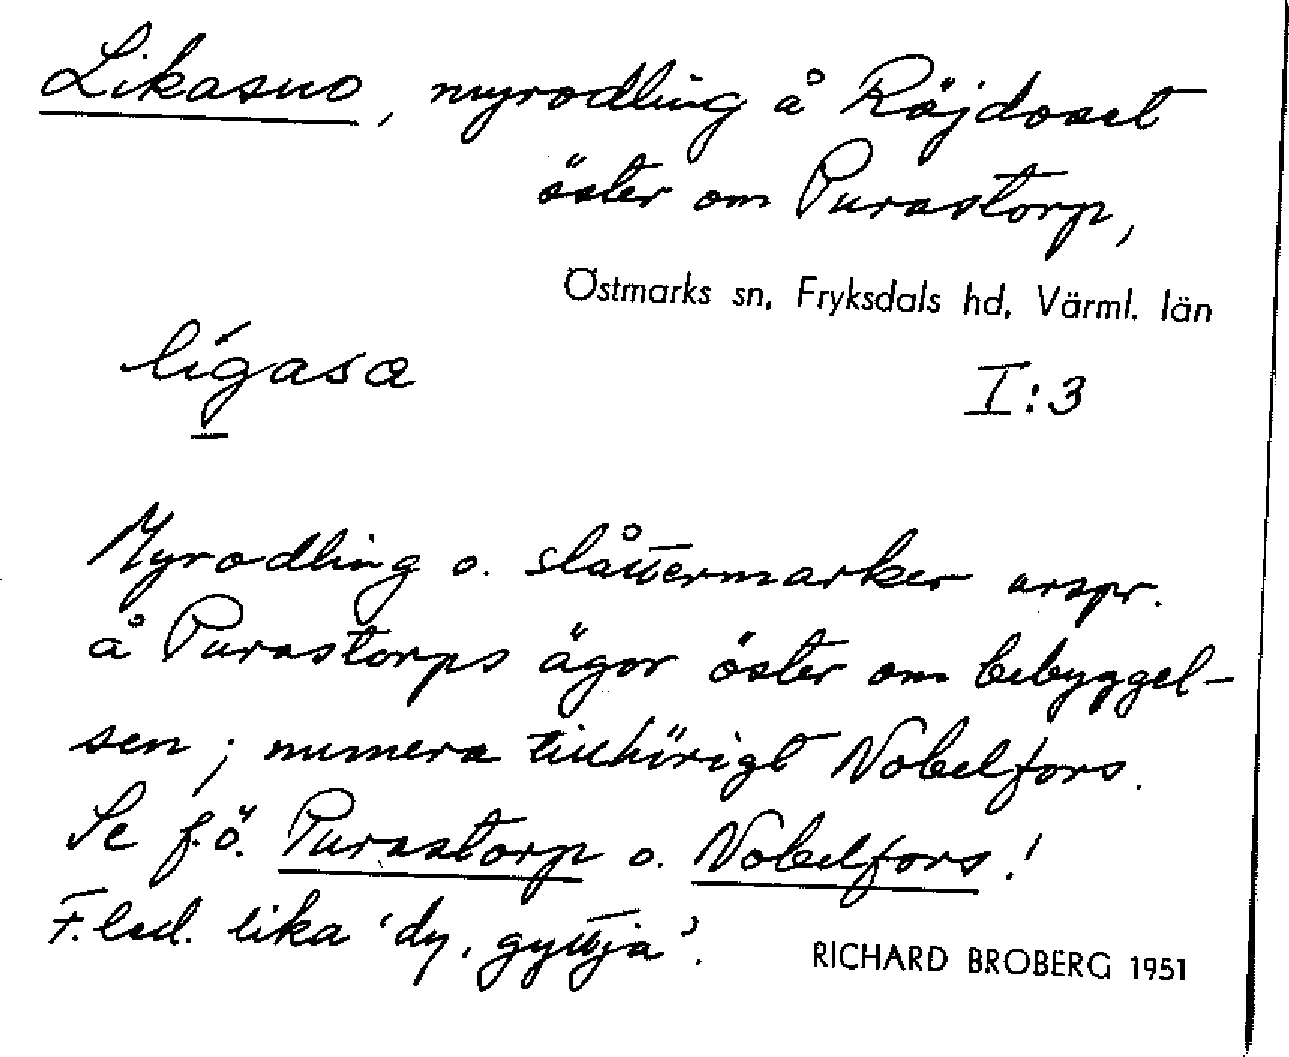 Likasuo, myrodling å Röjdoset
öster om Purastorp,
Östmarks sn, Fryksdals hd, Värml. län
lígasa
I:3
Myrodling o. slåttermarker urspr.
å Purastorps ägor öster om bebyggel-
sen; numera tillhörigt Nobelfors.
Se f.ö. Purastorp o. Nobelfors!
F.led. lika 'dy, gyttja'.
RICHARD BROBERG 1951